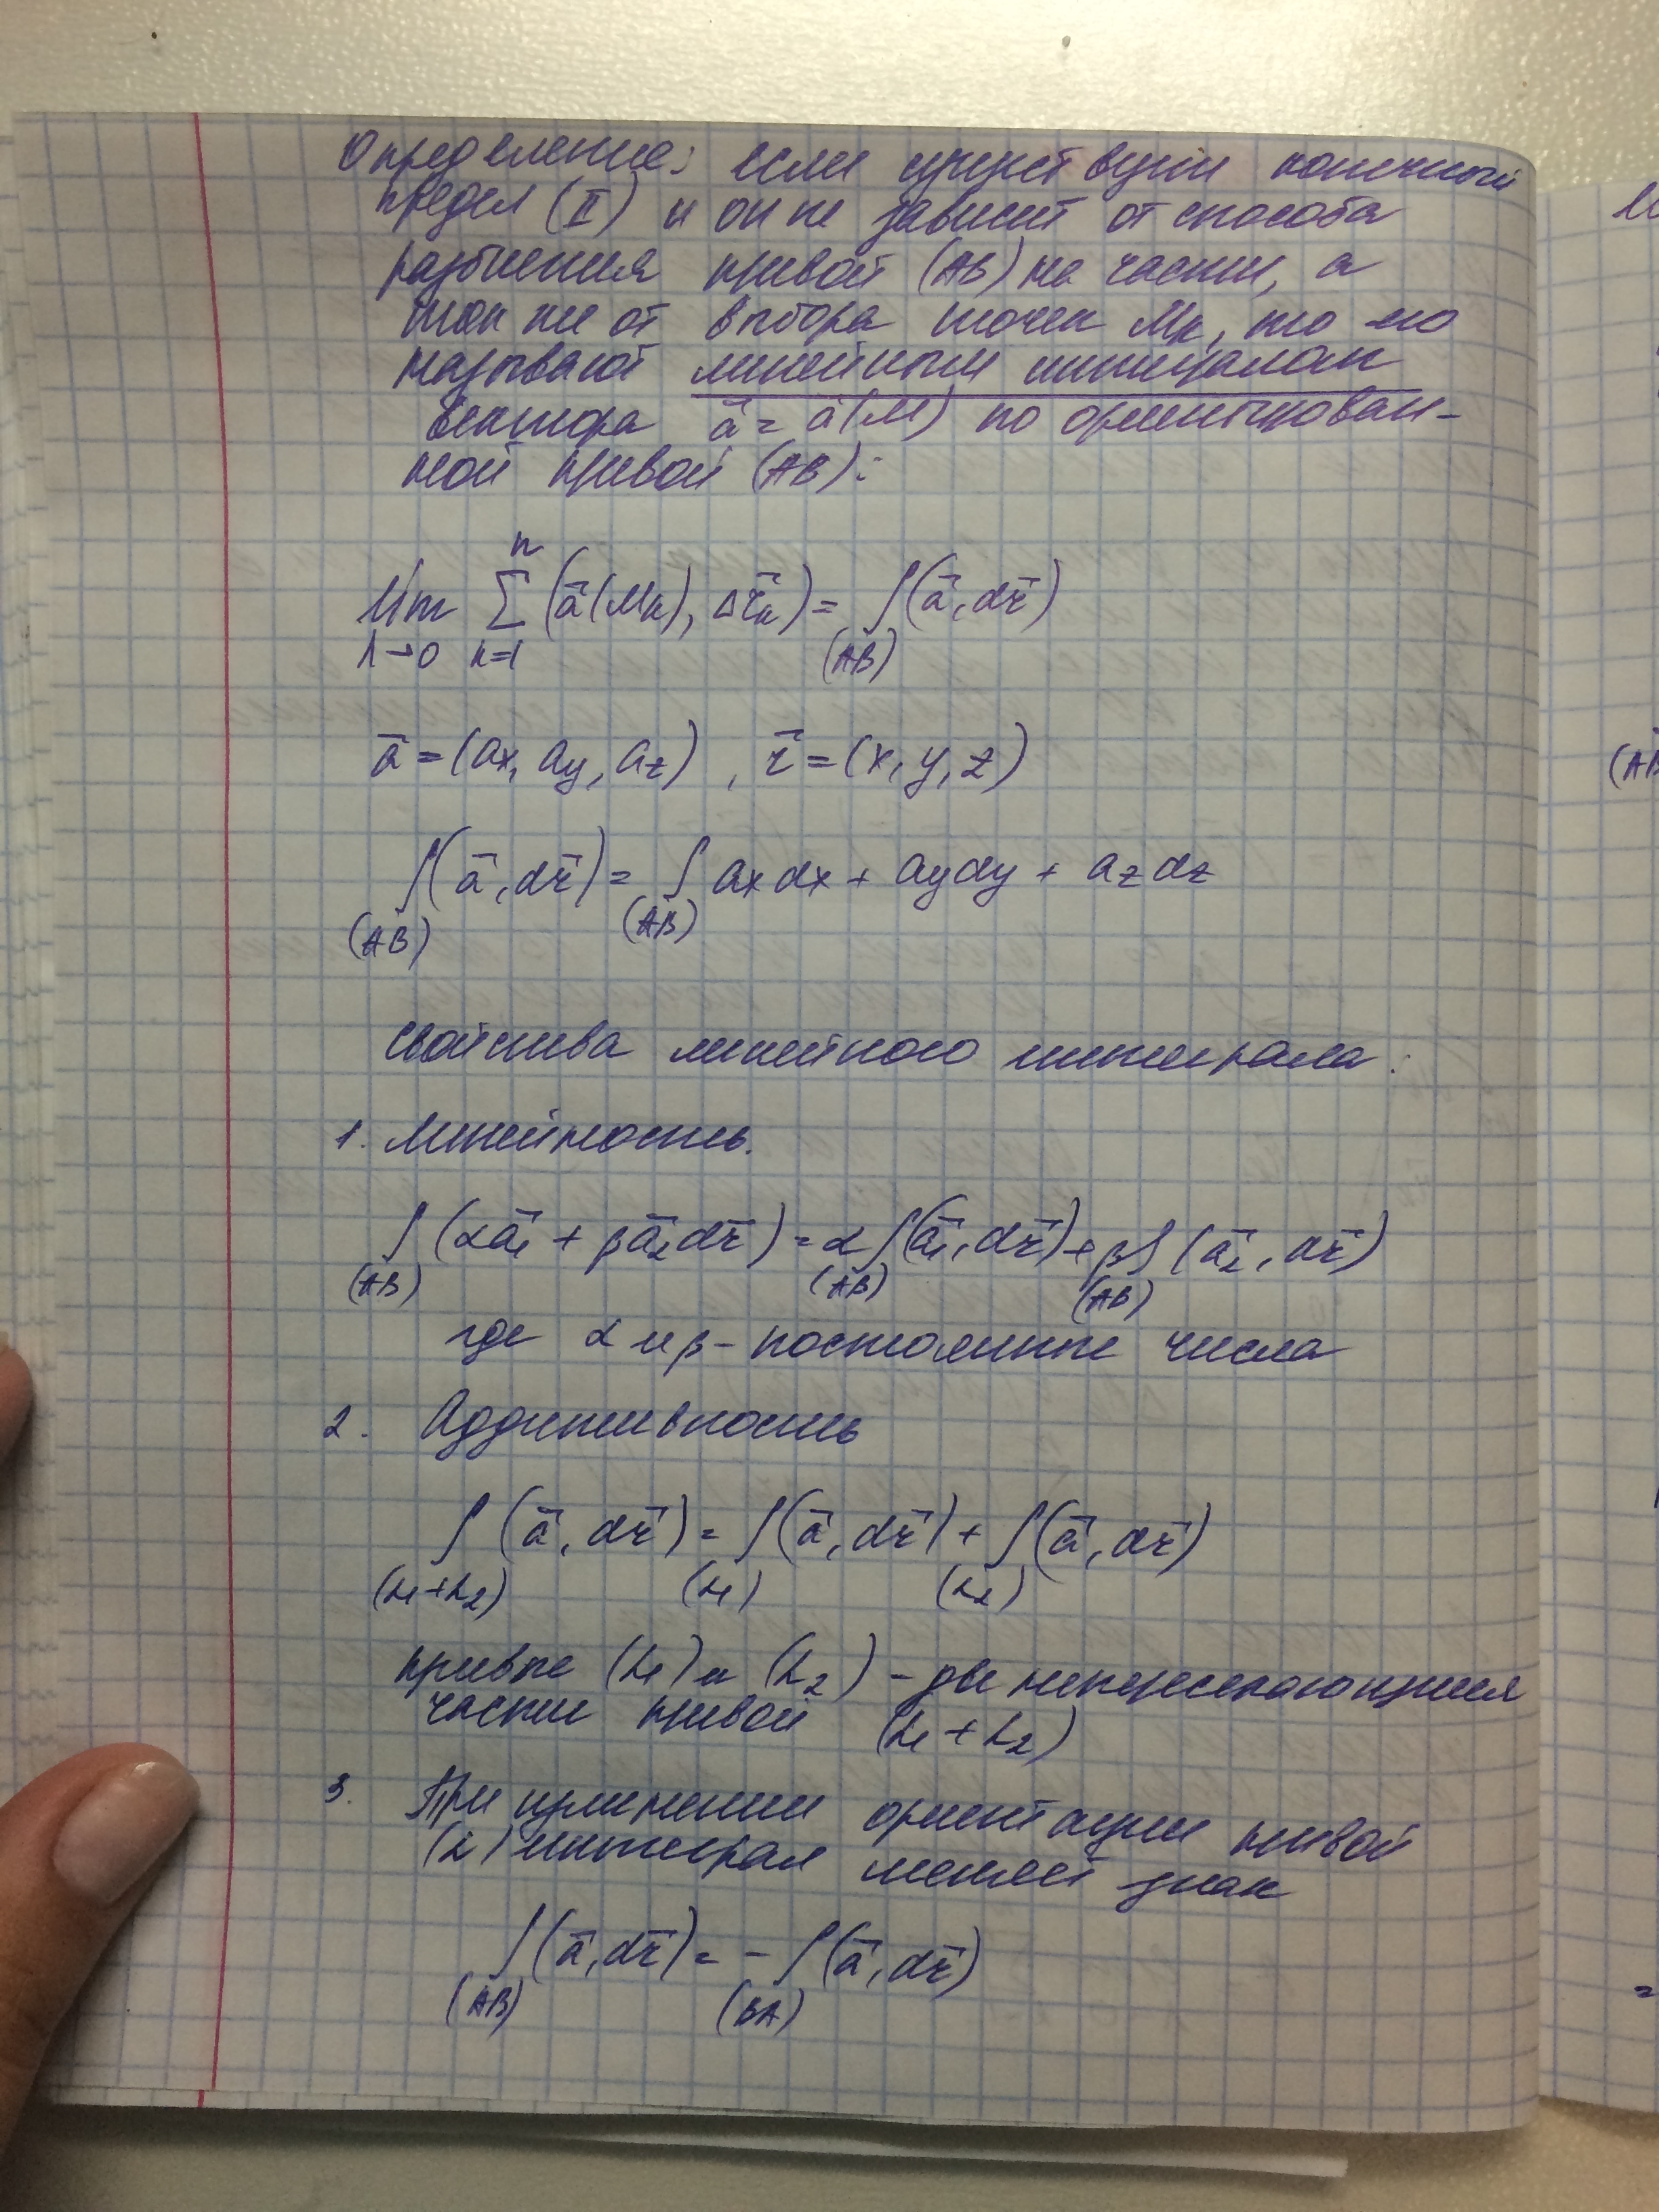 Определение: если существует конечный
предел (II) и он не зависит от способа
разбиения кривой (AB) на части, а
так же от выбора точек Mk, то его
называют линейным интегралом
вектора a⃗ = a⃗(M) по ориентирован-
ной кривой (AB):
lim λ→0 ∑ k=1 n (a⃗(Mk), Δr⃗k) = ∫(AB) (a⃗, dr⃗)
a⃗ = (ax, ay, az) , r⃗ = (x, y, z)
∫(AB) (a⃗, dr⃗) = ∫(AB) ax dx + ay dy + az dz
Свойства линейного интеграла:
1. Линейность.
∫(AB) (αa⃗1 + βa⃗2 dr⃗) = α∫(AB) (a⃗1, dr⃗) + β∫(AB) (a⃗2, dr⃗)
где α и β - постоянные числа
2. Аддитивность
∫(L1+L2) (a⃗, dr⃗) = ∫(L1) (a⃗, dr⃗) + ∫(L2) (a⃗, dr⃗)
кривые (L1) и (L2) - две непересекающиеся
части кривой (L1 + L2)
3. При изменении ориентации кривой
(L) интеграл меняет знак
∫(AB) (a⃗, dr⃗) = - ∫(BA) (a⃗, dr⃗)
(AB
=